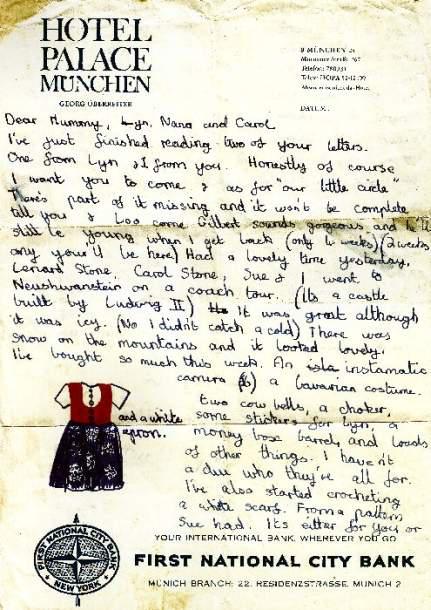 HOTEL
PALACE
MÜNCHEN
GEORG ÜBERREITER
8 MÜNCHEN
DATUM:
Dear Mummy, Lyn, Nana and Carol
I've just finished reading two of your letters.
One from Lyn & 1 from you. Honestly of course
I want you to come, & as for "our little circle"
There's part of it missing and it won't be complete
till you & Loo come. Gilbert sounds gorgeous and he'll
still be young when I get back (only 4 weeks) (2 weeks
any your'll be here) Had a lovely time yesterday,
Lenard Stone, Carol Stone, Sue & I went to
Neushwanstein on a coach tour. (Its a castle
built by Ludwig II) It was great although
it was icy. (No I didn't catch a cold) There was
snow on the mountains and it looked lovely.
I've bought so much this week. An instamatic
camera a bavarian costume.
two cow bells, a choker,
and a white
apron.
some stickers for Lyn, a
money box barrel, and loads
of other things. I haven't
a clue who they're all for.
I've also started crocheting
a white scarf. From a pattern
Sue had. It's either for you or
YOUR INTERNATIONAL BANK, WHEREVER YOU GO
FIRST NATIONAL CITY BANK
MUNICH BRANCH: 22, RESIDENZSTRASSE, MUNICH 2
FIRST NATIONAL CITY BANK
NEW YORK